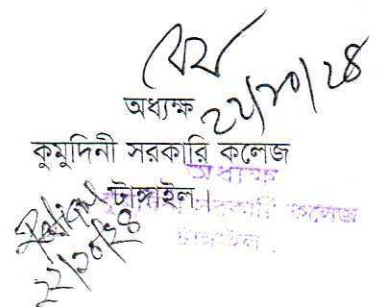 ২২/১০/২৪
অধ্যক্ষ
কুমুদিনী সরকারি কলেজ
টাঙ্গাইল।
অধ্যক্ষ
সরকারি কলেজ
টাঙ্গাইল
২২/১০/২৪